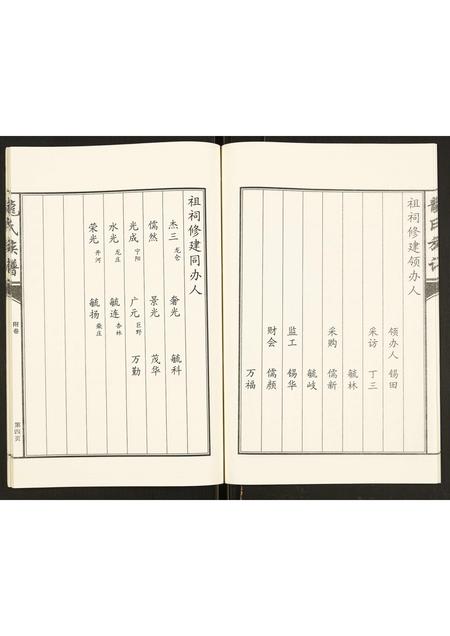 祖祠修建领办人
领办人 锡田
采访 丁三
毓林
采购 儒新
毓岐
监工 锡华
财会 儒颜
万福
祖祠修建同办人
杰三 龙仓 奢光 毓科
儒然 景光 茂华
光成 宁阳 广元 巨野 万勤
水光 龙庄 毓连 杏林
荣光 井河 毓扬 桑庄
龍氏族譜
附卷
第四页